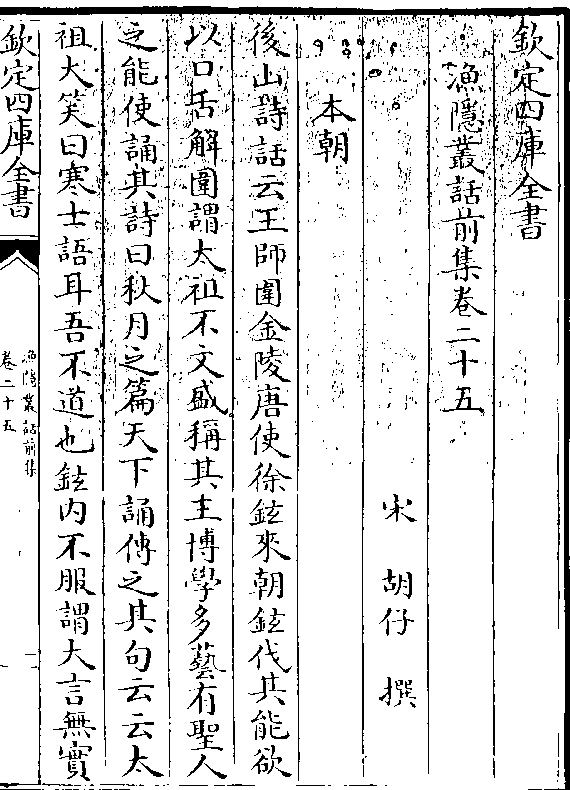 欽定四庫全書
漁隱叢話前集卷二十五
宋 胡仔 撰
本朝
後山詩話云王師圍金陵唐使徐鉉來朝鉉伐其能欲
以口舌解圍謂太祖不文盛稱其主博學多藝有聖人
之能使誦其詩曰秋月之篇天下誦傳之其句云云太
祖大笑曰寒士語耳吾不道也鉉内不服謂大言無實
欽定四庫全書
漁隱叢話前集
卷二十五
一